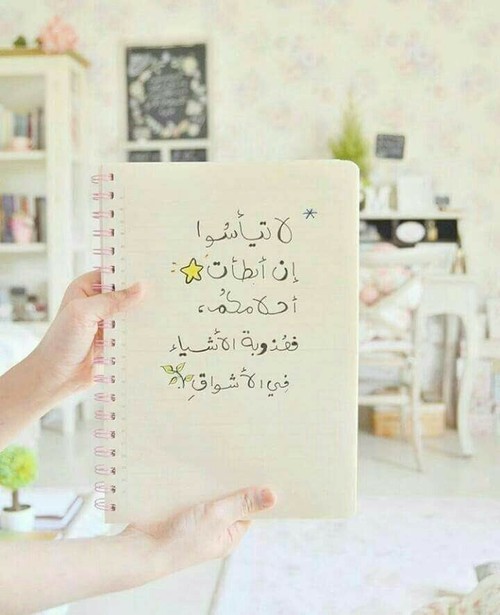 لا تيأسُوا
إن أبطأت
أحلامكُم،
فعُذوبة الأشياء
فِي الأشواقِ